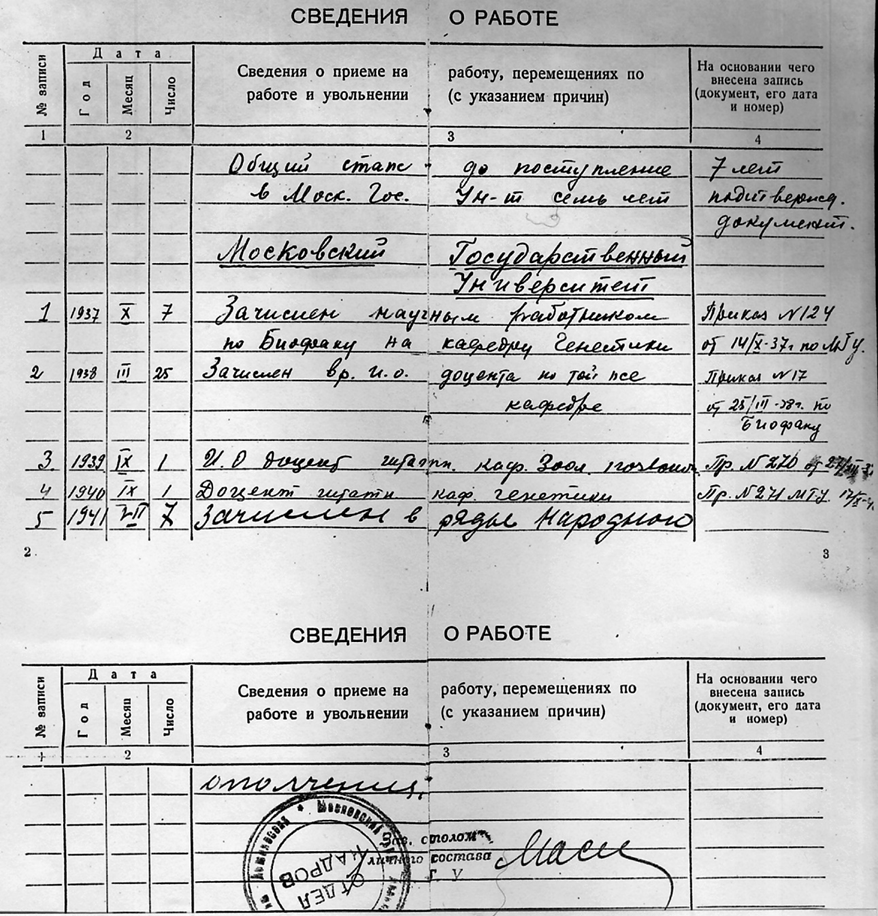 СВЕДЕНИЯ О РАБОТЕ
№ записи
Дата
Год
Месяц
Число
Сведения о приеме на работу, перемещениях по
работе и увольнении (с указанием причин)
На основании чего
внесена запись
(документ, его дата
и номер)
1 2 3 4
Общий стаж до поступление 7 лет
в Моск. Гос. Ун-т семь лет подтвержд.
документ.
Московский Государственный
Университет
1 1937 X 7 Зачислен научным работником Приказ №124
по Биофаку на кафедру Генетики от 14/X-37г по МГУ.
2 1938 III 25 Зачислен вр. и.о. доцента по той же Приказ №17
кафедре от 25/III-38г. по
Биофаку
3 1939 IX 1 И.О доцент штатн. каф. Зоол. позвон. Пр. №270 от
4 1940 IX 1 Доцент штатн каф. генетики Пр. №271 МГУ
5 1941 VII 7 Зачислен в ряды Народного
2 3
СВЕДЕНИЯ О РАБОТЕ
№ записи
Дата
Год
Месяц
Число
Сведения о приеме на работу, перемещениях по
работе и увольнении (с указанием причин)
На основании чего
внесена запись
(документ, его дата
и номер)
2 3 4
ополчения.
Московский
ОТДЕЛ
КАДРОВ
Зав. столом
личного состава
Г. У